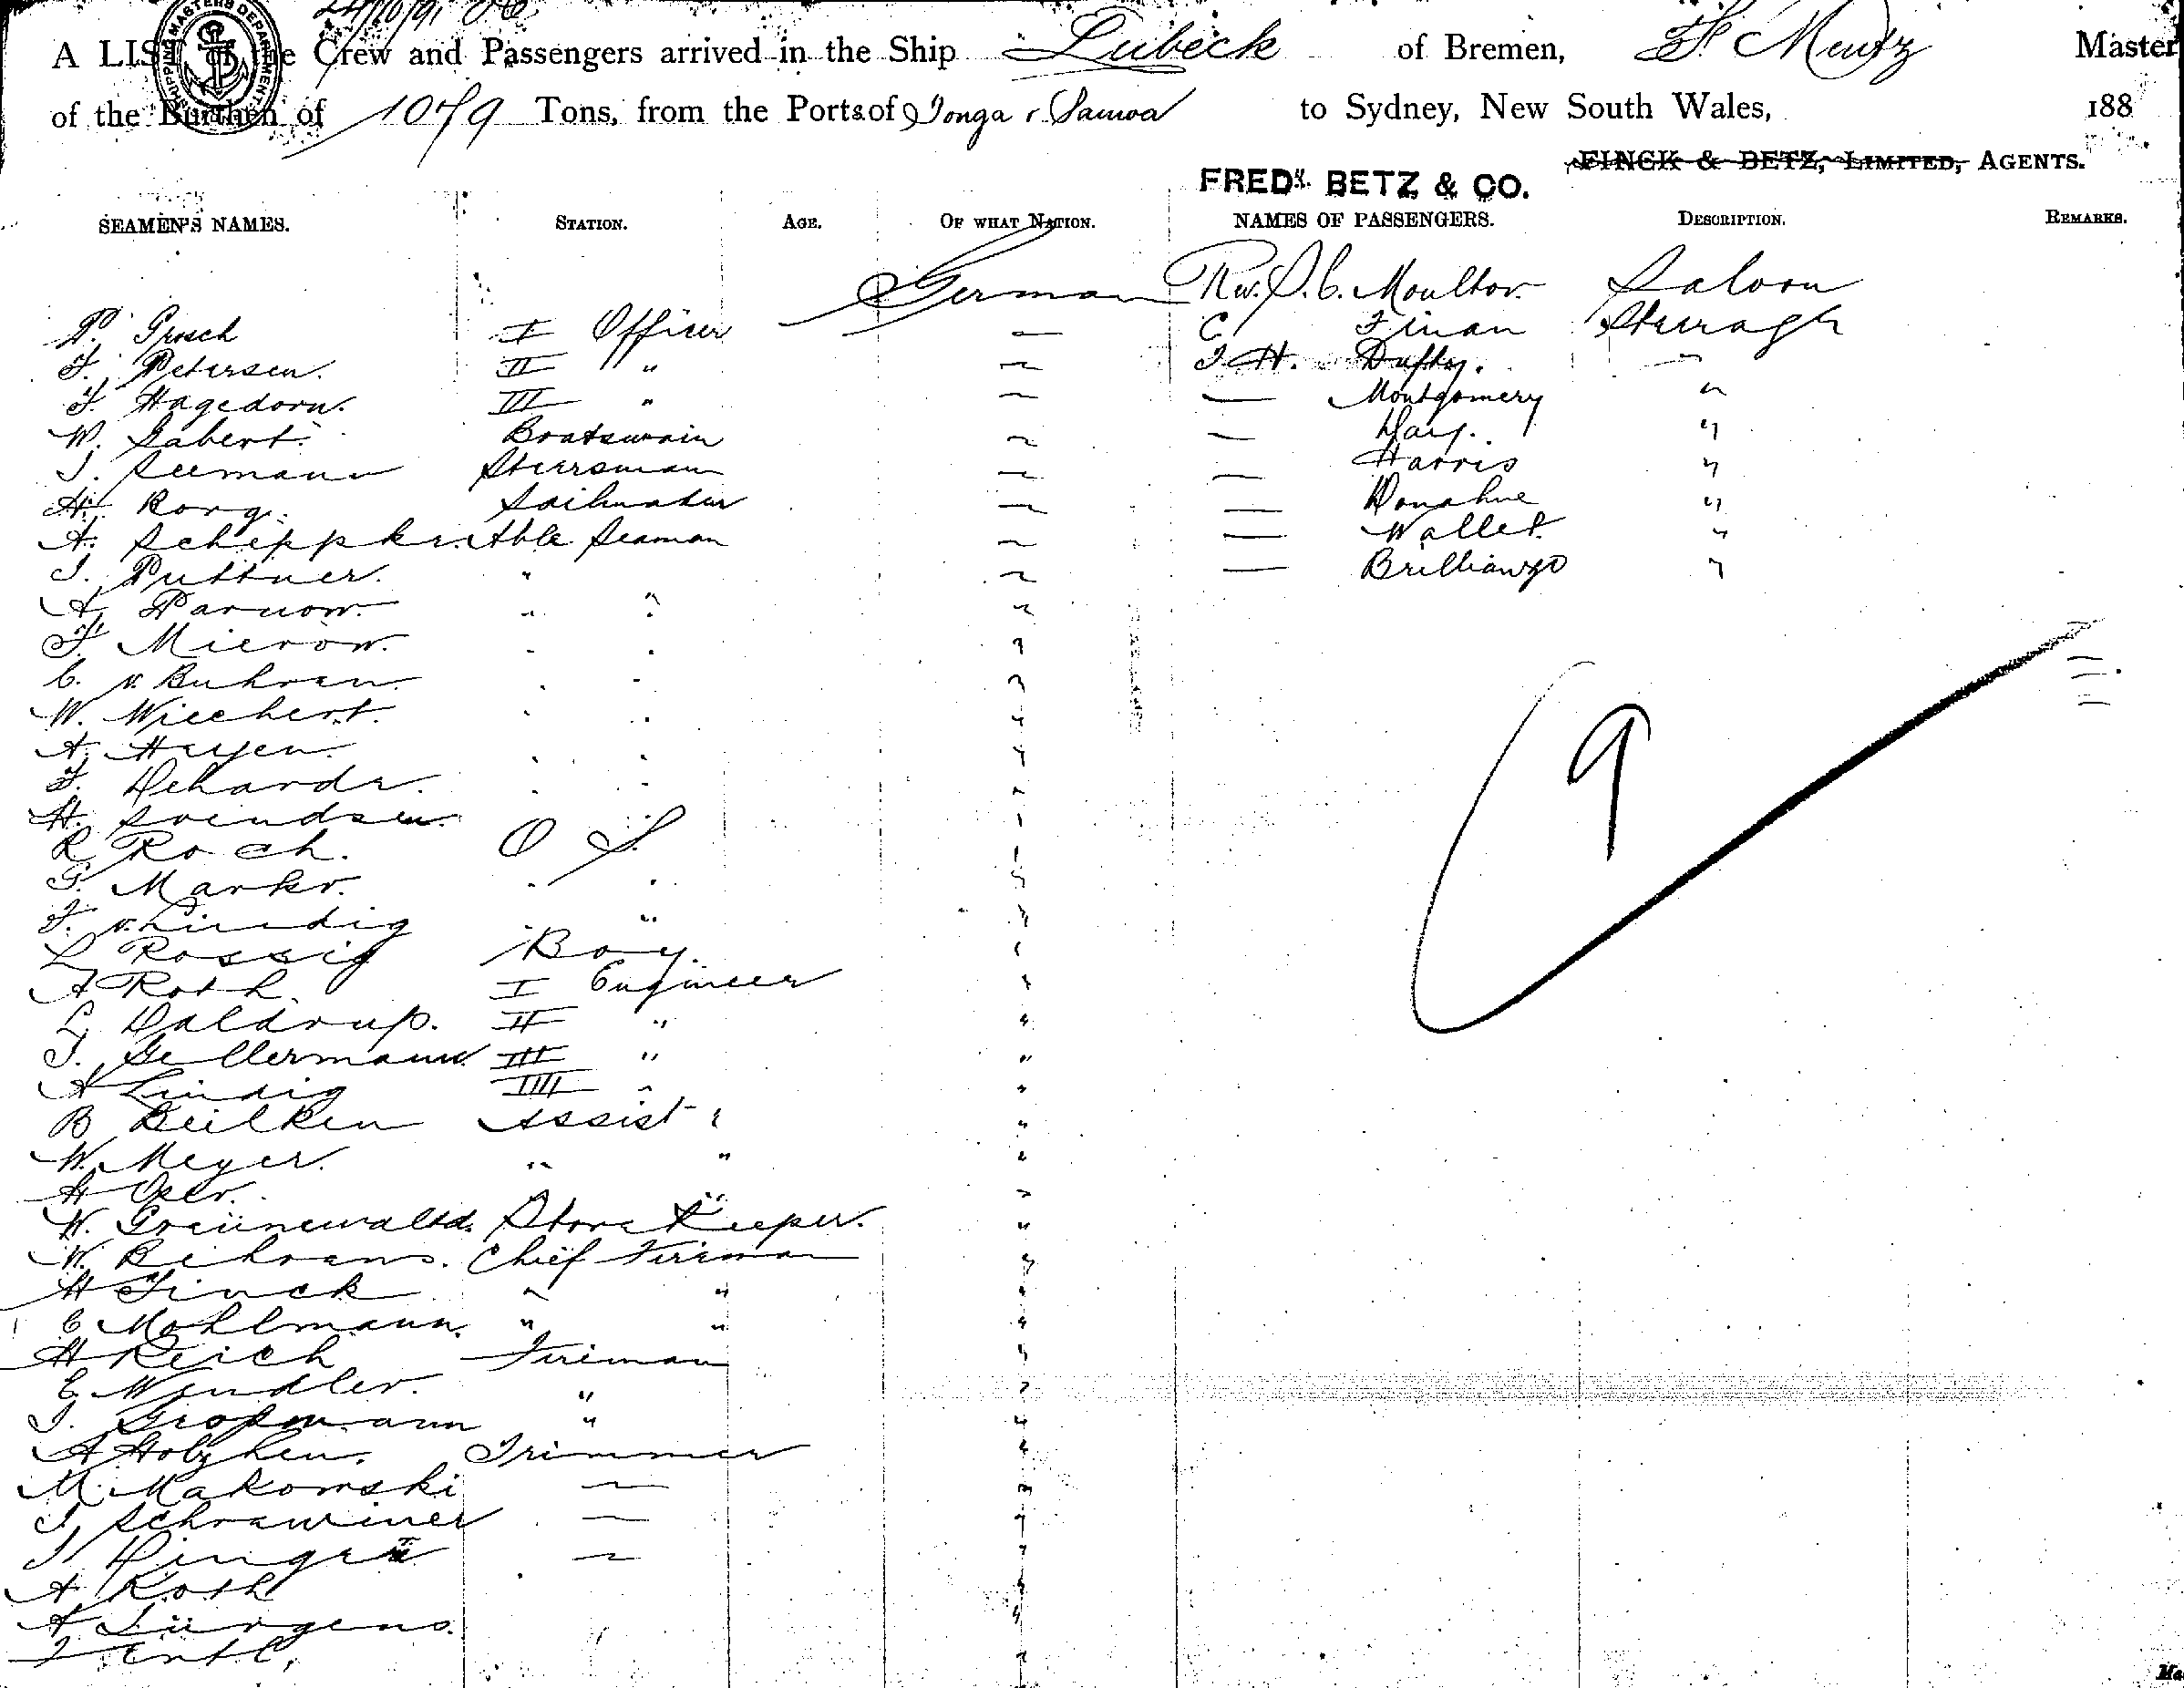 24/10/91
SHIPPING MASTERS DEPARTMENT
A LIST of the Crew and Passengers arrived in the Ship Lübeck of Bremen, Mentz Master
of the Burthen of 1079 Tons, from the Ports of Tonga & Samoa to Sydney, New South Wales, 188
FINCK & BETZ, LIMITED, AGENTS.
FREDK. BETZ & CO.
SEAMEN'S NAMES. STATION. AGE. OF WHAT NATION. NAMES OF PASSENGERS. DESCRIPTION. REMARKS.
German Rev. Moulton Saloon
P. Grosch I Officer — C Finan Steerage
F. Petersen. II " — J H. Dufty. —
F. Hagedorn. III " — — Montgomery "
W. Gabert. Boatswain — — Day. "
J. Seemann Steersman — — Harris "
H. Borg. Sailmaker — — Donahue "
A. Scheppke. Able Seaman — — Wallet. "
J. Puttner. " — — "
A. Parnow. " " "
F. Mierow. " " "
C. v. Buhren. " " "
W. Wiechert. " " "
A. Heyen. " " "
F. Deharde. " " "
H. Svendsen. " " "
R Roch. O S. "
G. Markv. " " "
F. v. Lindig " " "
L Rossig Boy. "
A Roth. I Engineer "
L. Daldrup. II " "
J. Gellermann. III " "
A Lindig IIII " "
B Beilken Assist "
W. Meyer. " " "
H " "
W. Grünewald. Store Keeper. "
W. Behrens. Chief Fireman "
H Finck " " "
C Mohlmann. " " "
H Reich Fireman "
E Wendler. " "
J. Großmann " "
A Holzhen. Trimmer "
M. Makowski — "
J. Schrawiner — "
J. — "
A Roth "
A Jürgens. "
"
9